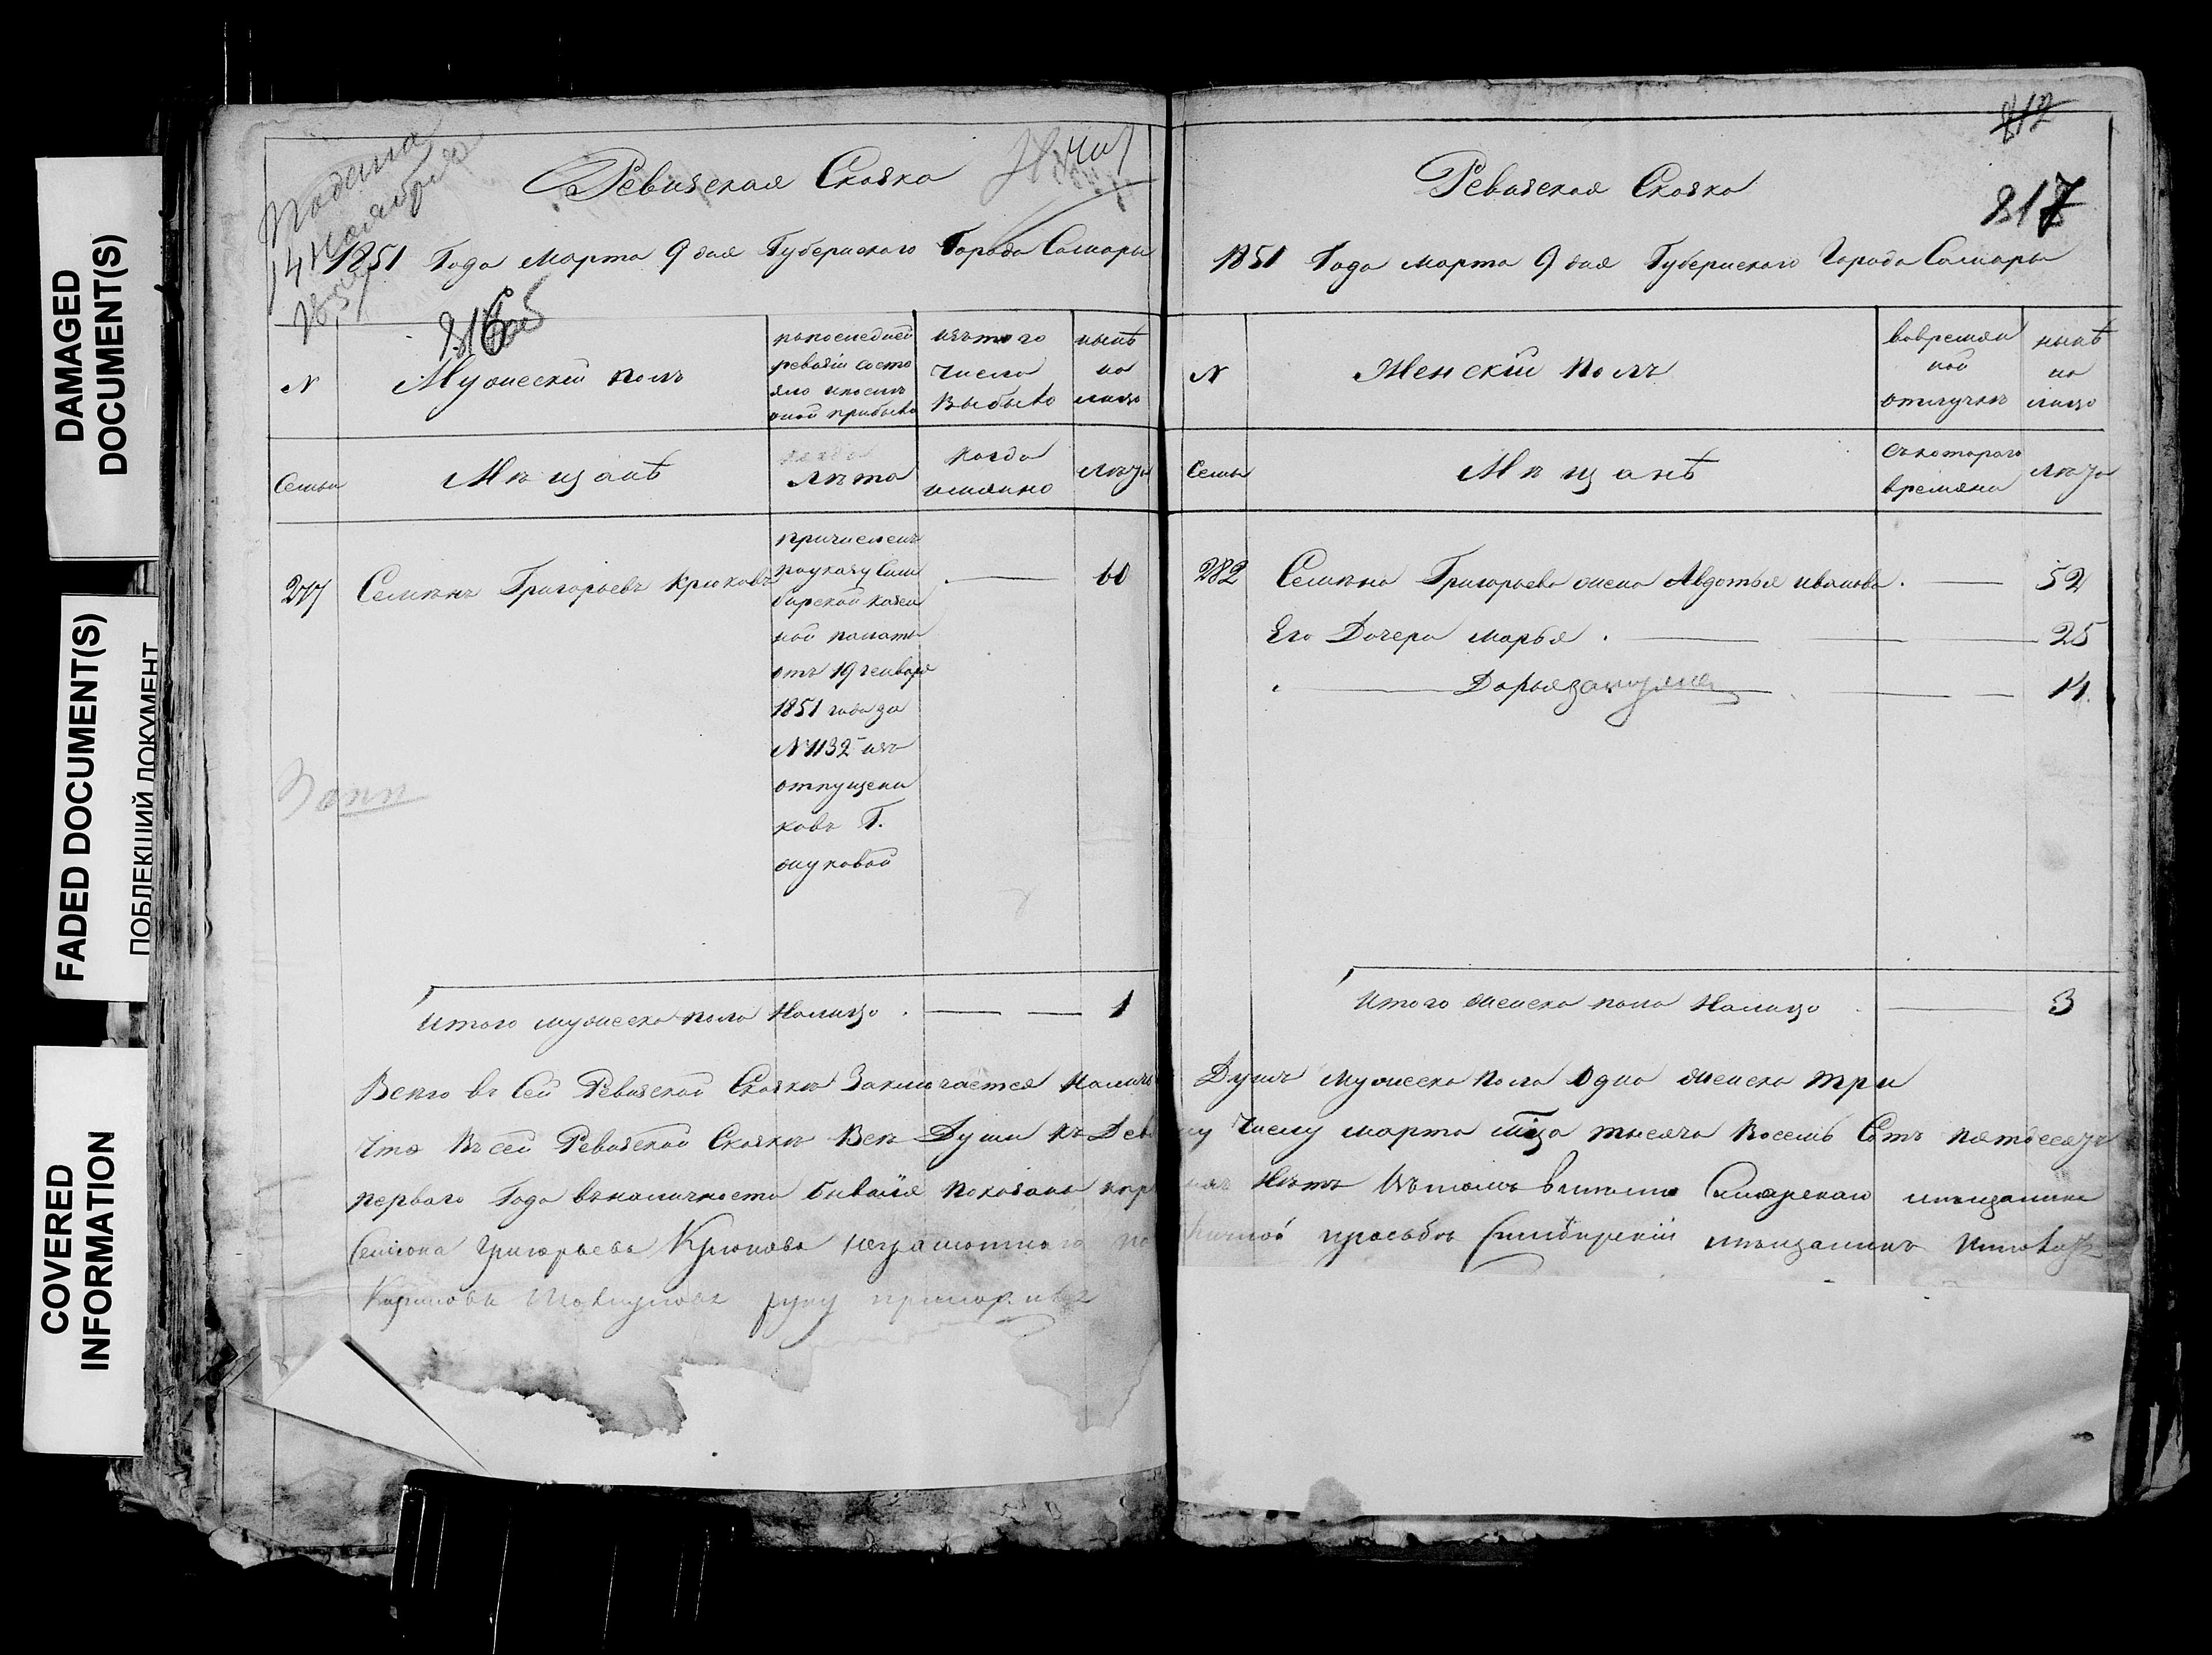 DAMAGED
DOCUMENT(S)
FADED DOCUMENT(S)
ПОБЛЕКШИЙ ДОКУМЕНТ
COVERED
INFORMATION
Подана
14 Ноября
1851
Ревизская Сказка
1851 Года марта 9 дня Губернского Города Самары
816 об
N
Мужеский полъ
попоследней
ревизіи состо
яло ипосль
оной прибыло
изътого
числа
выбыло
нынѣ
на
лицо
Семьи
Мѣщанѣ
Лѣта
когда
именно
лѣта
277
Семѣнъ Григорьевъ Крюковъ
причисленъ
поуказу Сим
бирской казен
ной палаты
отъ 19 генваря
1851 года за
N 1132 изъ
отпущени
ковъ Г.
жуковой
60
Итого мужеска пола Налицо 1
212
817
Ревизская Сказка
1851 Года марта 9 дня Губернского Города Самары
N
Женскій полъ
вовремян
ной
отлучкѣ
нынѣ
на
лицо
Семьи
Мѣщанѣ
съкотораго
времяни
лѣта
282
Семѣна Григорьева жена Авдотья иванова 52
Его Дочери марья 25
Дарья замужем 14
Итого женска пола Налицо 3
Всѣго въ Сей Ревизской Сказкѣ Заключается Налич Душъ мужеска пола Одна женска три
Что Въсей Ревизской Сказкѣ Всѣ Души къ Дев му Числу марта мца тысяча Восемь Сотъ пятьдесятъ
перваго Года вналичности бывшія показаны нѣтъ Вътомъ
Семіона Григорьева Крюкова неграмотнаго просьбѣ Симбирскій мѣщанинъ
руку приложилъ